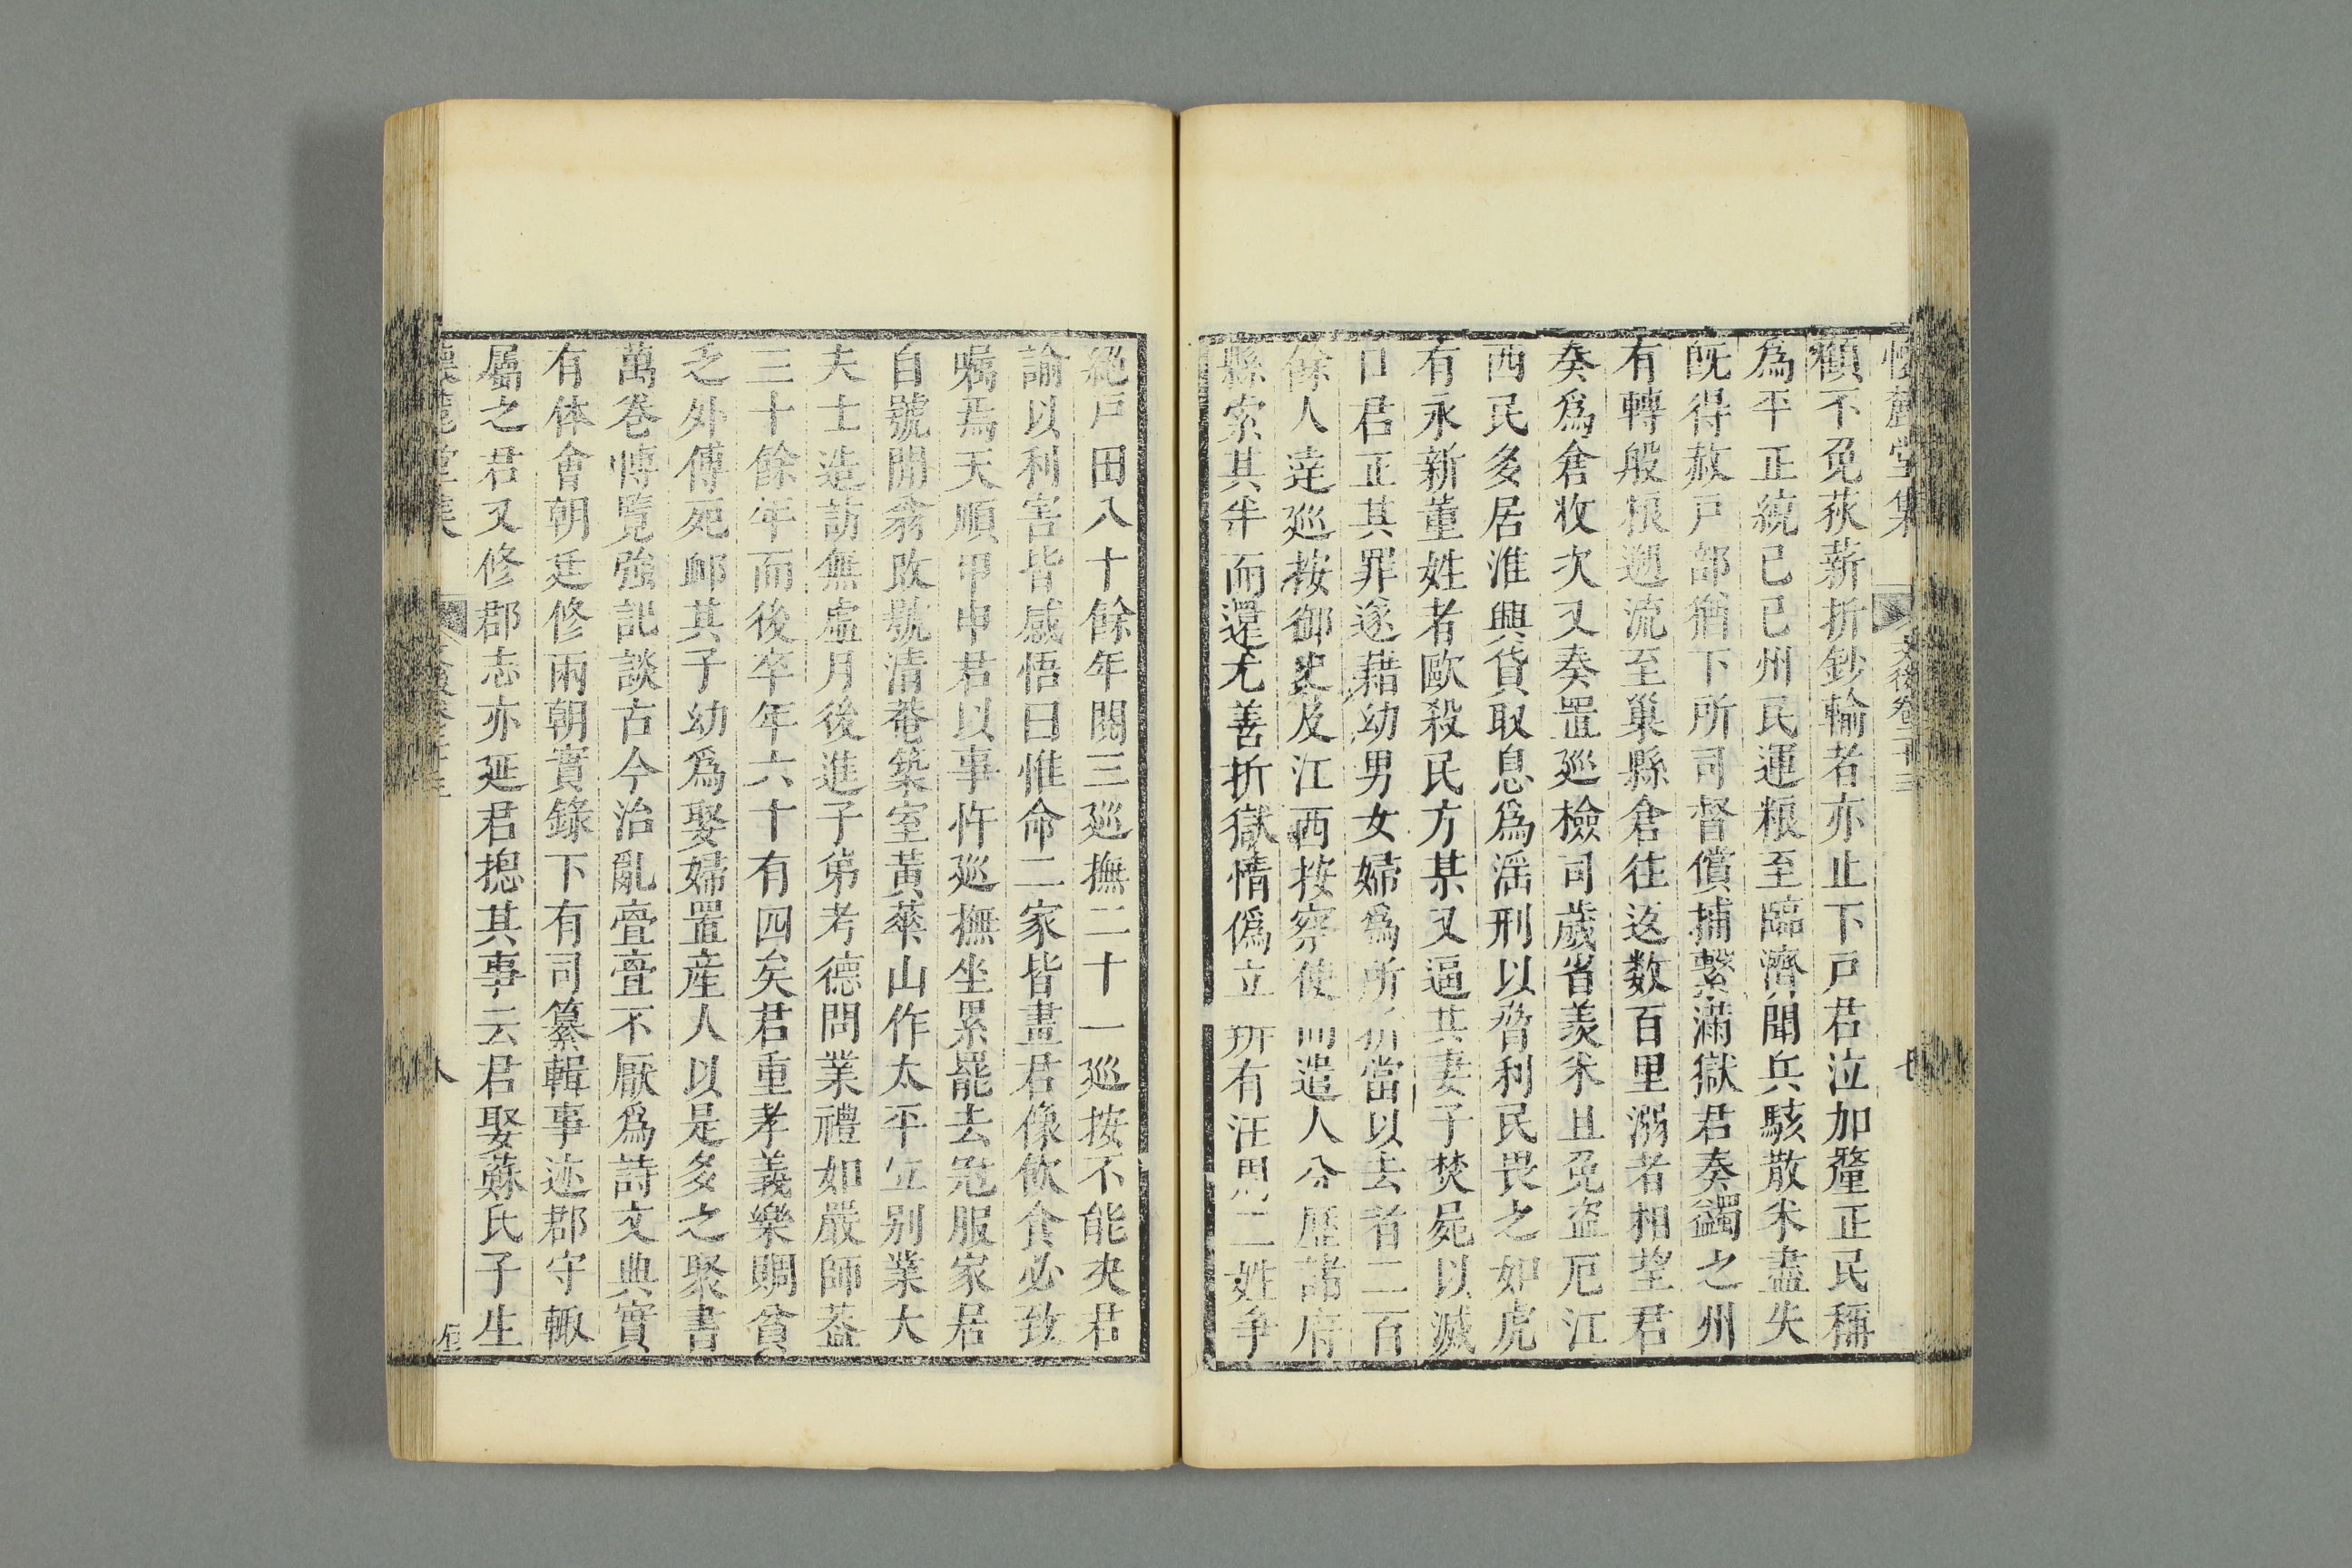 懷麓堂集 文後卷二十三 七
顧不免荻薪折鈔輸者亦止下戸君泣加釐正民稱
為平正統己巳州民運粮至臨濟聞兵駭散米盡失
既得赦戸部猶下所司督償捕繫滿獄君奏蠲之州
有轉般粮遡流至巢縣倉往返数百里溺者相望君
奏爲倉收次又奏置廵檢司歲省羨米且免盗厄江
西民多居淮興貨取息爲淫刑以脅利民畏之如虎
有永新董姓者歐殺民方某又逼其妻子焚屍以滅
口君正其罪遂藉幼男女婦爲所折當以去者二百
餘人逹廵按御史及江西按察使而遣人分歷諸府
縣索其半而還尤善折獄情僞立 有汪 二姓爭
絕戸田八十餘年閱三廵撫二十一廵按不能决君
諭以利害皆感悟曰惟命二家皆畫君像飲食必致
嘱焉天順甲申君以事忤廵撫坐累罷去冠服家居
自號閒翁改號清菴築室黄華山作太平立别業大
夫士造訪無虛月後進子弟考德問業禮如嚴師葢
三十餘年而後卒年六十有四矣君重孝義樂賙貧
之外傅死䘏其子幼爲娶婦置産人以是多之聚書
萬卷愽覽強記談古今治亂亹亹不厭爲詩文典實
有体會朝廷修兩朝實錄下有司纂輯事迹郡守輙
屬之君又修郡志亦延君揔其事云君娶蘇氏子生
懷麓堂集 文後卷二十三 八